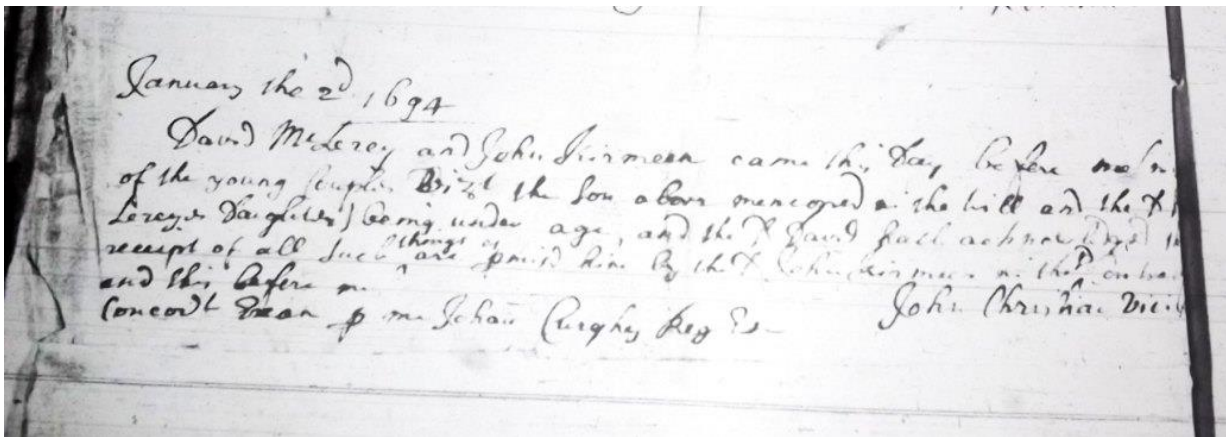 January the 2d 1694
David McLerey and John Kirmeen came this Day before me
of the young Couples Vizt the Son above mencioned in the will and the sd
Lereyes Daughter) being under age, and the sd David hath acknowledged
receipt of all such things as are pmisd him by the sd John Kirmeen in the
and this before me
John Christian Vicr
Concordt cum p me Johan Curghy Reg